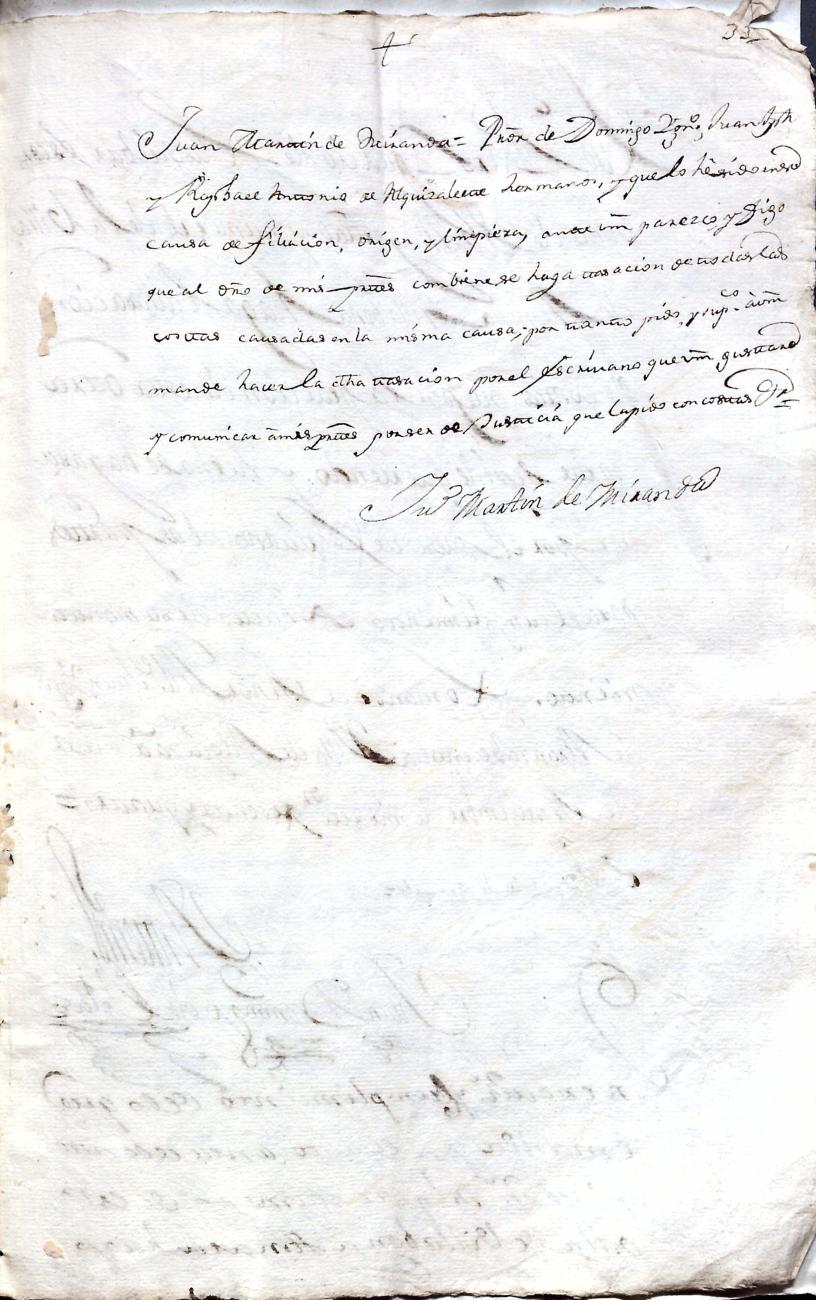 33
Juan Martin de Miranda = Pror de Domingo Ygno, Juan Jph
y Raphael Antonio de Alquizalete hermanos, y que lo hè sido en su
causa de filiacion, origen, y limpieza, ante vm parezco y digo
que al dro de mis prttes combiene se haga tasacion de todas las
costas causadas en la misma causa, por tanto pido, y supco à vm
mande hacer la dha tasacion por el Escrivano que vm gustare
y comunicar à mis prttes por ser de Justicia que la pido con costas
Jun Martin de Miranda